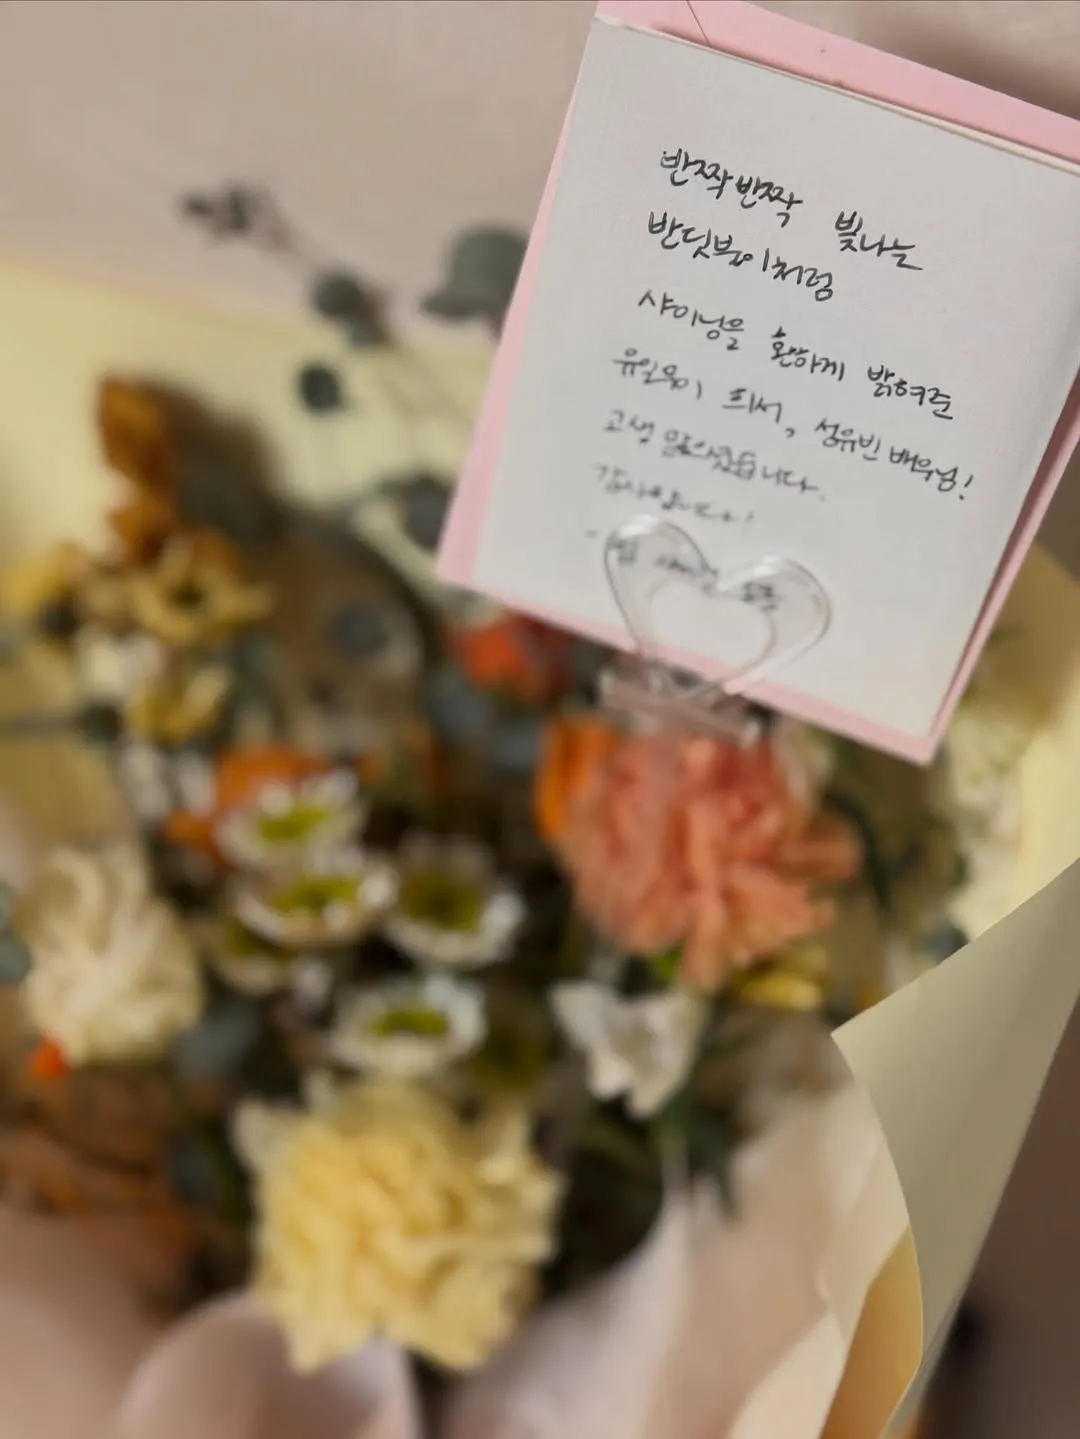 반짝반짝 빛나는
반딧불이처럼
샤이닝을 환하게 밝혀준
유일무이 희서, 성유빈 배우님!
고생 많으셨습니다.
감사합니다!